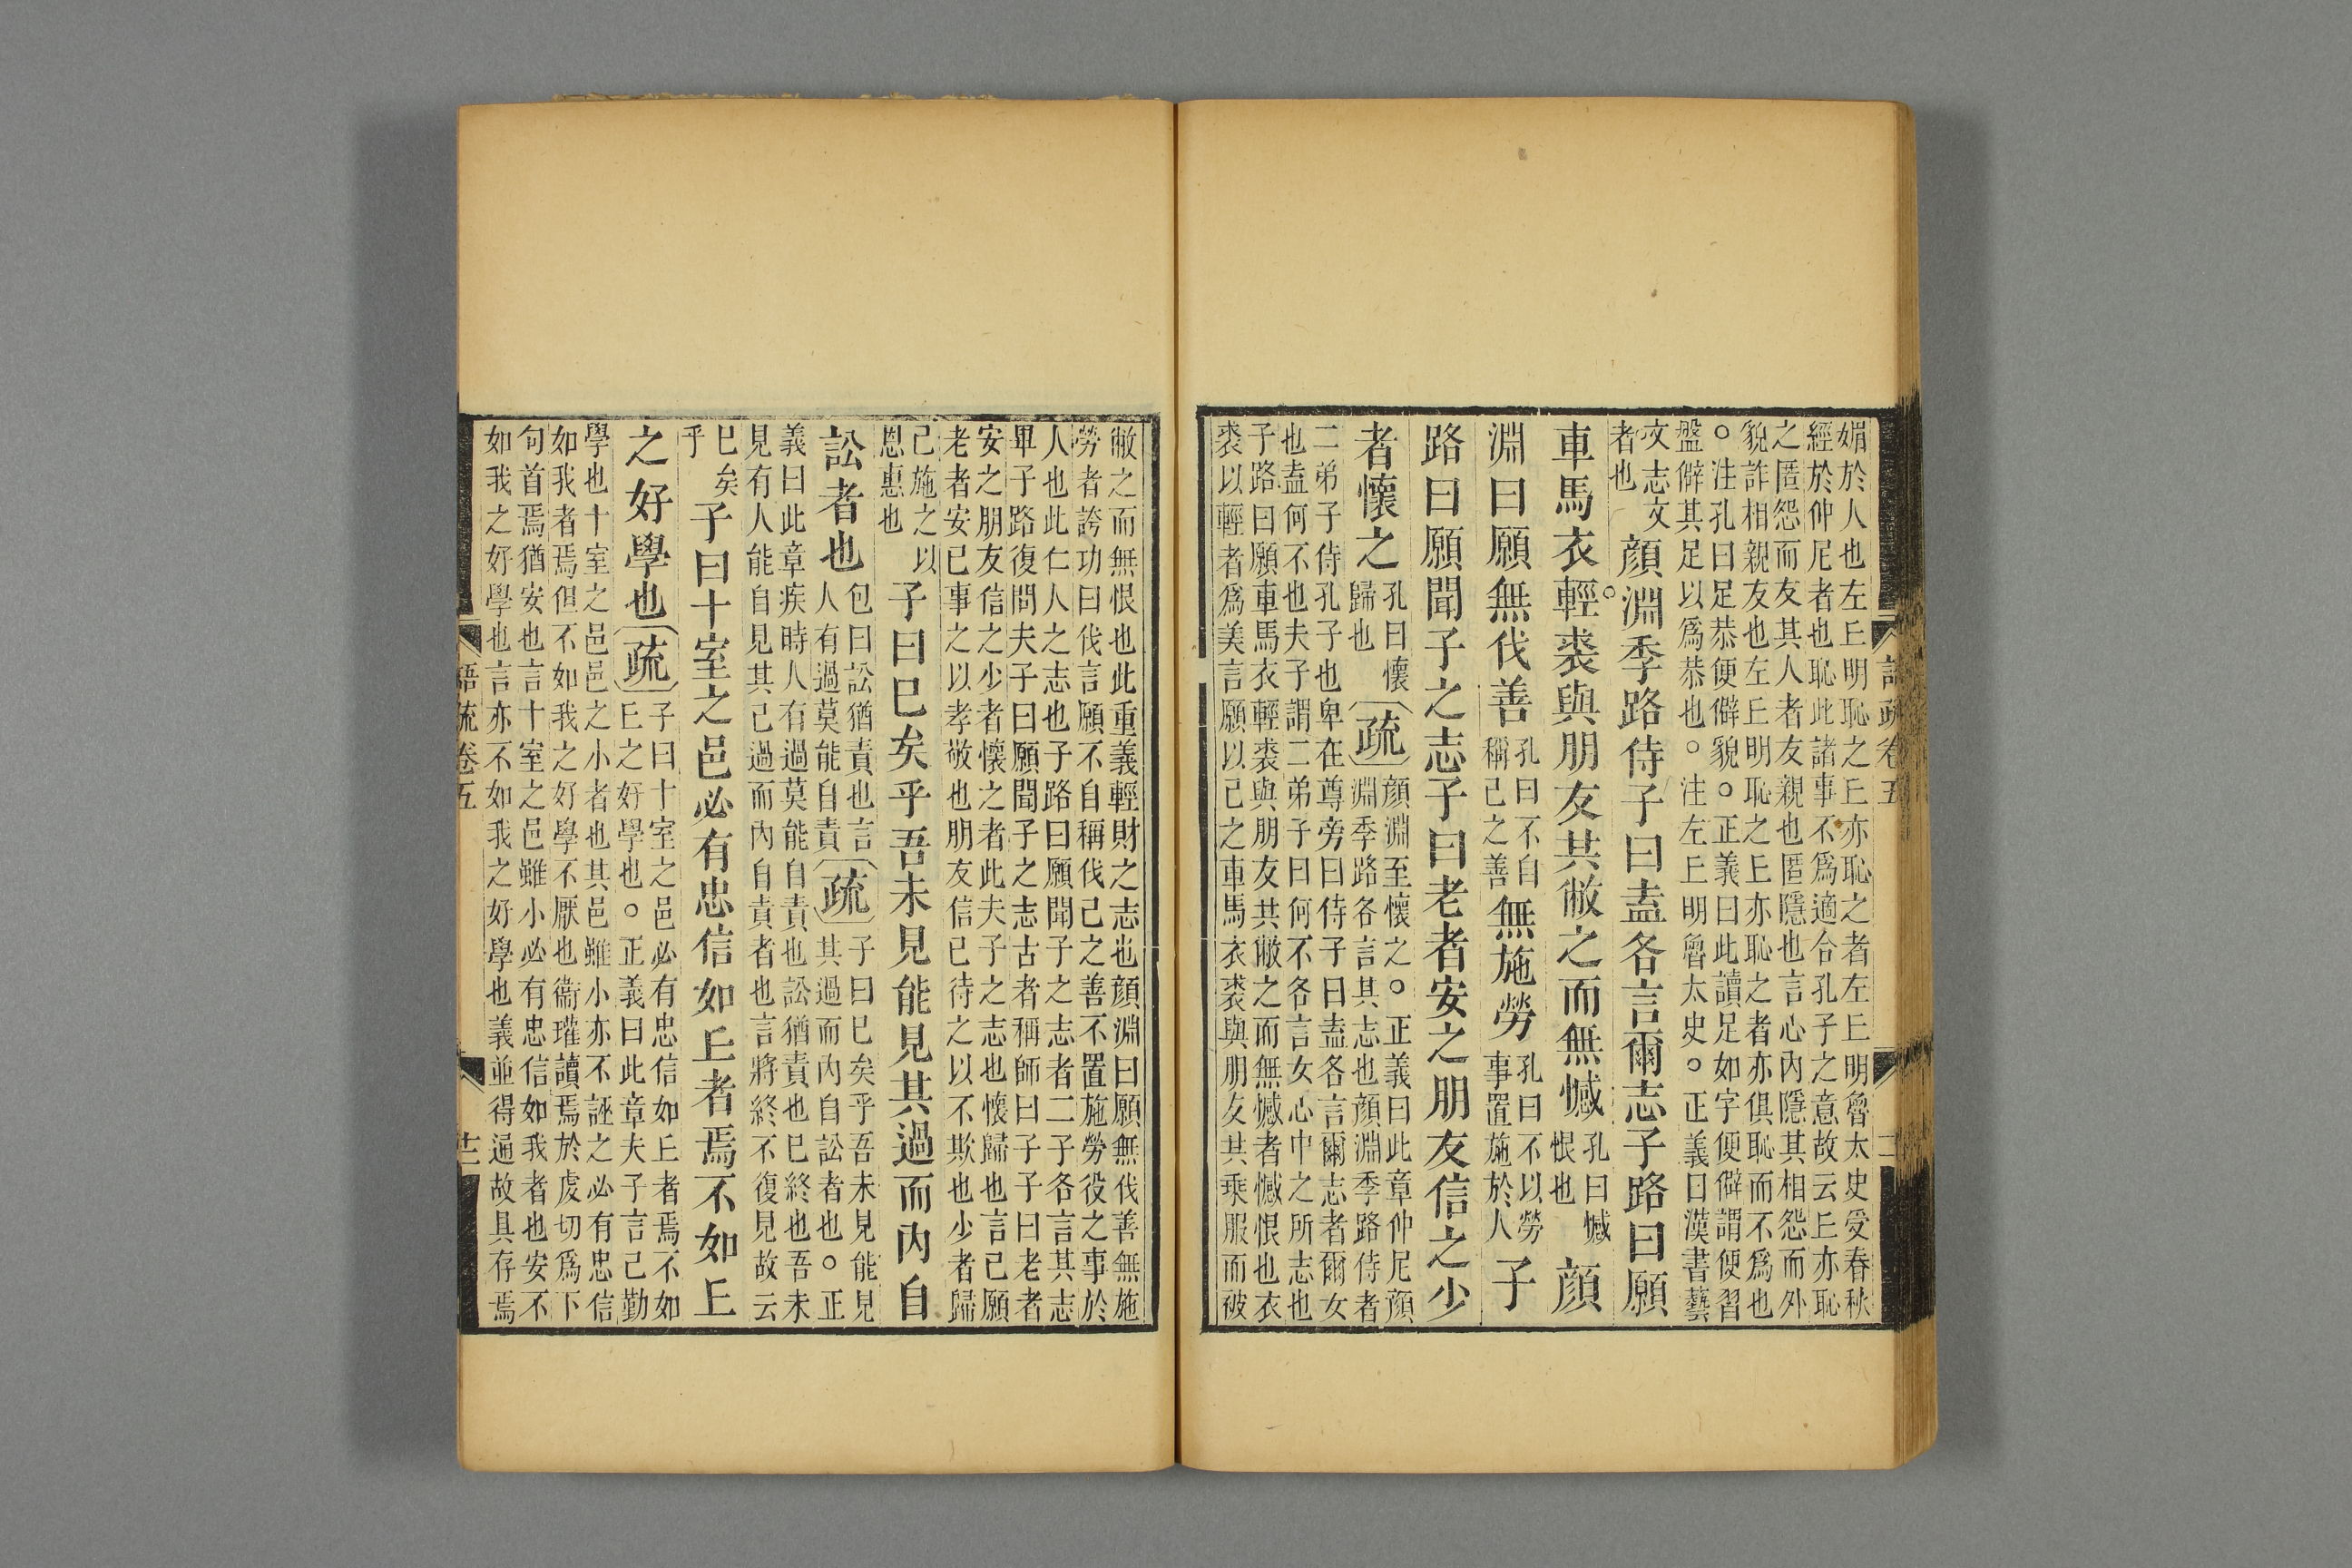 語疏卷五 二
媚於人也左丘明恥之丘亦恥之者左丘明魯太史受春秋
經於仲尼者也恥此諸事不爲適合孔子之意故云丘亦恥
之匿怨而友其人者友親也匿隱也言心內隱其相怨而外
貌詐相親友也左丘明恥之丘亦恥之者亦俱恥而不爲也
。注孔曰足恭便僻貌。正義曰此讀足如字便僻謂便習
盤僻其足以爲恭也。注左丘明魯太史。正義曰漢書藝
文志文
者也
顏淵季路侍子曰盍各言爾志子路曰願
車馬衣輕裘與朋友共敝之而無憾
孔曰憾
恨也
顏
淵曰願無伐善
孔曰不自
稱己之善
無施勞
孔曰不以勞
事置施於人
子
路曰願聞子之志子曰老者安之朋友信之少
者懷之
孔曰懷
歸也
疏
顏淵至懷之。正義曰此章仲尼顏
淵季路各言其志也顏淵季路侍者
二弟子侍孔子也卑在尊旁曰侍子曰盍各言爾志者爾女
也盍何不也夫子謂二弟子曰何不各言女心中之所志也
子路曰願車馬衣輕裘與朋友共敝之而無憾者憾恨也衣
裘以輕者爲美言願以己之車馬衣裘與朋友共乘服而被
敝之而無恨也此重義輕財之志也顏淵曰願無伐善無施
勞者誇功曰伐言願不自稱伐己之善不置施勞役之事於
人也此仁人之志也子路曰願聞子之志者二子各言其志
畢子路復問夫子曰願聞子之志古者稱師曰子子曰老者
安之朋友信之少者懷之者此夫子之志也懷歸也言己願
老者安己事之以孝敬也朋友信己待之以不欺也少者歸
己施之以
恩惠也
子曰已矣乎吾未見能見其過而內自
訟者也
包曰訟猶責也言
人有過莫能自責
疏
子曰已矣乎吾未見能見
其過而內自訟者也。正
義曰此章疾時人有過莫能自責也訟猶責也已終也吾未
見有人能自見其己過而內自責者也言將終不復見故云
已矣
乎
子曰十室之邑必有忠信如丘者焉不如丘
之好學也
疏
子曰十室之邑必有忠信如丘者焉不如
丘之好學也。正義曰此章夫子言己勤
學也十室之邑邑之小者也其邑雖小亦不誣之必有忠信
如我者焉但不如我之好學不厭也衞瓘讀焉於虔切爲下
句首焉猶安也言十室之邑雖小必有忠信如我者也安不
如我之好學也言亦不如我之好學也義並得通故具存焉
語疏卷五 十二